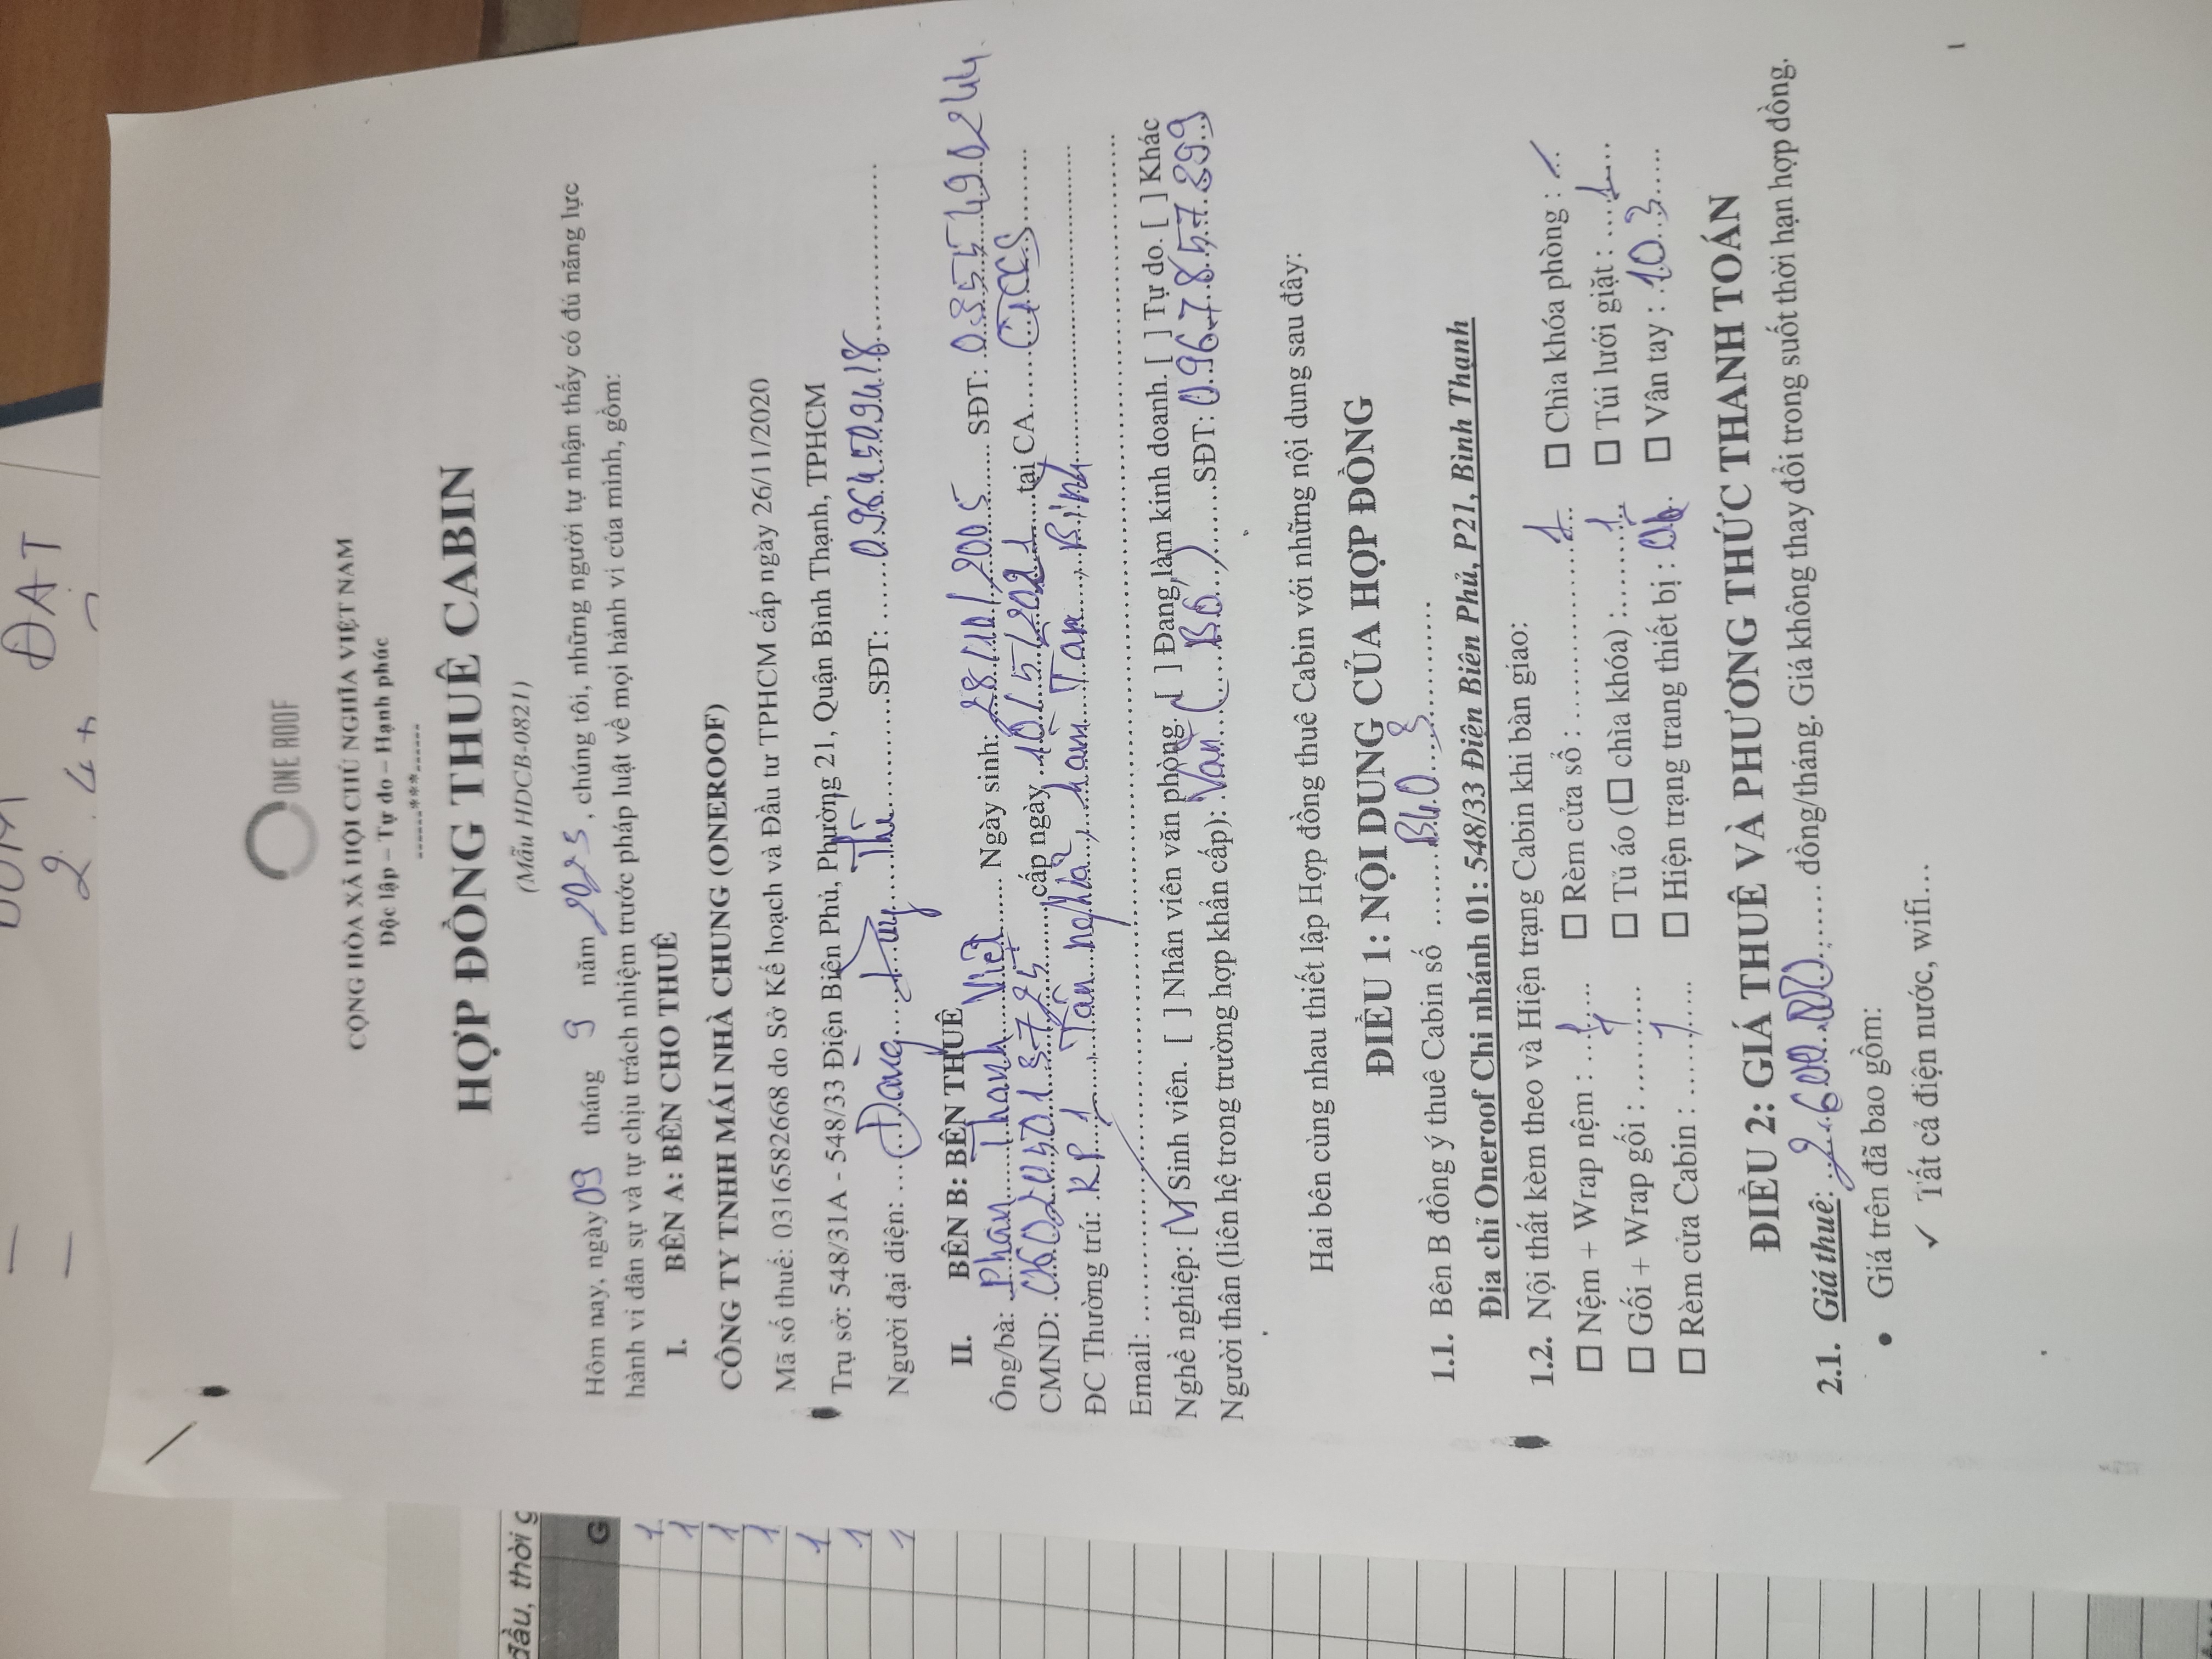 ĐẠT
ONE ROOF
CỘNG HÒA XÃ HỘI CHỦ NGHĨA VIỆT NAM
Độc lập – Tự do – Hạnh phúc
------***------
HỢP ĐỒNG THUÊ CABIN
(Mẫu HDCB-0821)
Hôm nay, ngày 09 tháng 9 năm 2025, chúng tôi, những người tự nhận thấy có đủ năng lực
hành vi dân sự và tự chịu trách nhiệm trước pháp luật về mọi hành vi của mình, gồm:
I. BÊN A: BÊN CHO THUÊ
CÔNG TY TNHH MÁI NHÀ CHUNG (ONEROOF)
Mã số thuế: 0316582668 do Sở Kế hoạch và Đầu tư TPHCM cấp ngày 26/11/2020
Trụ sở: 548/31A - 548/33 Điện Biên Phủ, Phường 21, Quận Bình Thạnh, TPHCM
Người đại diện: Đang Thi SĐT: 0964509418
II. BÊN B: BÊN THUÊ
Ông/bà: Phan Thanh Việt Ngày sinh: 28/10/2005 SĐT: 0855490244
CMND: cấp ngày 10/5/2021 tại CA CTCCS
ĐC Thường trú: KP1, Tân nghĩa, hàm Tan, Bình
Email:
Nghề nghiệp: [V] Sinh viên. [ ] Nhân viên văn phòng. [ ] Đang làm kinh doanh. [ ] Tự do. [ ] Khác
Người thân (liên hệ trong trường hợp khẩn cấp): Van (Bố) SĐT: 0967857899
Hai bên cùng nhau thiết lập Hợp đồng thuê Cabin với những nội dung sau đây:
ĐIỀU 1: NỘI DUNG CỦA HỢP ĐỒNG
1.1. Bên B đồng ý thuê Cabin số B40
Địa chỉ Oneroof Chi nhánh 01: 548/33 Điện Biên Phủ, P21, Bình Thạnh
1.2. Nội thất kèm theo và Hiện trạng Cabin khi bàn giao:
☐ Nệm + Wrap nệm : 1 ☐ Rèm cửa sổ : 1 ☐ Chìa khóa phòng : 1
☐ Gối + Wrap gối : 1 ☐ Tủ áo (☐ chìa khóa) : 1 ☐ Túi lưới giặt : 1
☐ Rèm cửa Cabin : 1 ☐ Hiện trạng trang thiết bị : ☐ Vân tay : 103
ĐIỀU 2: GIÁ THUÊ VÀ PHƯƠNG THỨC THANH TOÁN
2.1. Giá thuê: 2.600.000 đồng/tháng. Giá không thay đổi trong suốt thời hạn hợp đồng.
• Giá trên đã bao gồm:
✓ Tất cả điện nước, wifi…
1
đầu, thời g
G
1
1
1
1
1
1
1